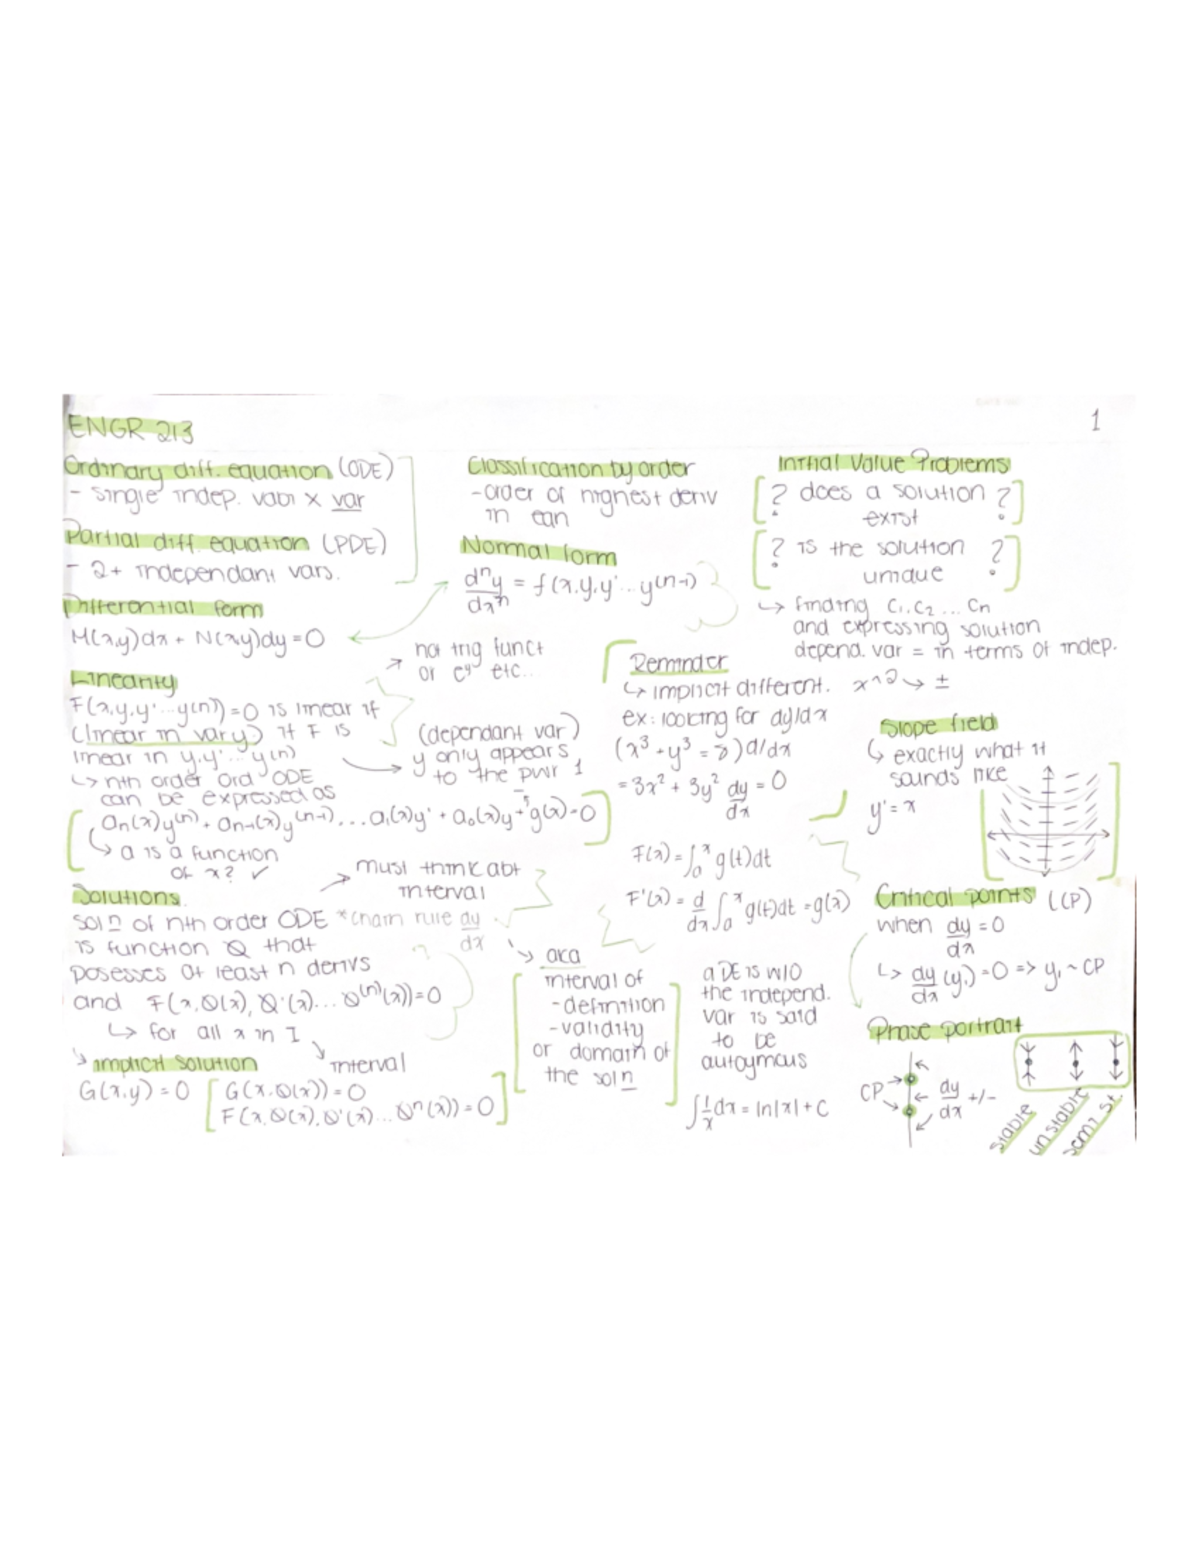 ENGR 213
1
Ordinary diff. equation (ODE)
- single indep. vabl x var
Partial diff. equation (PDE)
- 2+ independant vars.
Differential form
M(x,y)dx + N(x,y)dy = 0
Linearity
F(x,y,y'...y(n)) = 0 is linear if
(linear in var y) if F is
linear in y,y'...y(n)
↳ nth order ord ODE
can be expressed as
an(x)y(n) + an-1(x)y(n-1)... a1(x)y' + a0(x)y - g(x) = 0
↳ a is a function
of x? ✓
Solutions
soln of nth order ODE
is function Ø that
posesses at least n derivs
and F(x, Ø(x), Ø'(x)... Ø(n)(x)) = 0
↳ for all x in I
interval
implicit solution
G(x,y) = 0
G(x, Ø(x)) = 0
F(x, Ø(x), Ø'(x)... Øn(x)) = 0
Classification by order
- order of highest deriv
in eqn
Normal form
dⁿy/dxⁿ = f(x,y,y'...y(n-1))
no trig funct
or eʸ etc...
(dependant var)
y only appears
to the pwr 1
must think abt
interval
*chain rule dy/dx
aka
interval of
- definition
- validity
or domain of
the soln
Initial Value Problems
? does a solution ?
exist
? is the solution ?
unique
↳ finding C1, C2 ... Cn
and expressing solution
depend. var = in terms of indep.
Reminder
↳ implicit different. x^2 → ±
ex: looking for dy/dx
(x³ + y³ = 8) d/dx
= 3x² + 3y² dy/dx = 0
F(x) = ∫₀ˣ g(t)dt
F'(x) = d/dx ∫₀ˣ g(t)dt = g(x)
a DE is w/o
the independ.
var is said
to be
autoymous
∫1/x dx = ln|x| + C
Slope field
↳ exactly what it
sounds like
y' = x
Critical points (CP)
when dy/dx = 0
↳ dy/dx (y1) = 0 => y1 ~ CP
Phase portrait
CP
dy/dx +/-
stable
unstable
semi st